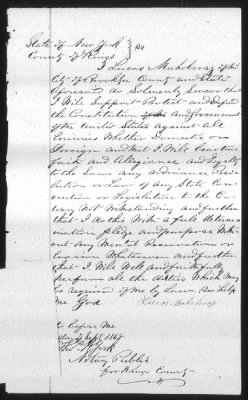 State of New York } SS
County of Kings
I Lucas Muhoberay of the
City of Brooklyn County and State
Aforesaid do Solemnly Swear that
I Will Support Protect and Defend
the Constitution and Government
of the United States against All
Enemies Whether Domestic, or
Foreign and that I Will bear true
faith and Allegiance and Loyalty
to the Same any Ordinance Reso-
lution or Law of any State Con-
vention or Legislature to the Con-
trary Not Withstanding and further
that I do this With a full deter-
mination pledge and purpose With
out any Mental Reservation or
evasion Whatsoever and further
that I Will Well and faithfully
perform all the duties Which May
be required of me by Law So help
me God
Lucas Muhoberay
to before Me
day of Sept 1865
York
Notary Public
for Kings County